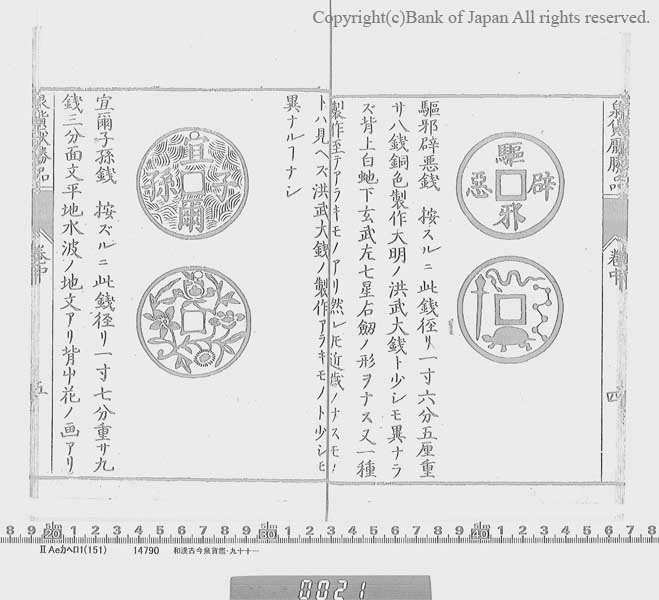 Copyright(c)Bank of Japan All rights reserved.
驅
辟
邪
惡
驅邪辟悪銭　按スルニ此銭徑リ一寸六分五厘重
サ八銭銅色製作大明ノ洪武大銭ト少シモ異ナラ
ズ背上白地下玄武左七星右劔ノ形ヲナス又一種
製作至テアラキモノアリ然レ𪜈近歳ノナスモノ
トハ見ヘズ洪武大銭ノ製作アラキモノト少シモ
異ナルヿナシ
四
宜
子
爾
孫
宜爾子孫銭　按ズルニ此銭徑リ一寸七分重サ九
銭三分面文平地水波ノ地文アリ背中花ノ画アリ
卷中
五
8 9 20 1 2 3 4 5 6 7 8 9 30 1 2 3 4 5 6 7 8 9 40 1 2 3 4 5 6 7 8
II Aeカヘロ1(151) 14790 和漢古今泉貨鑑・九十十一
0021